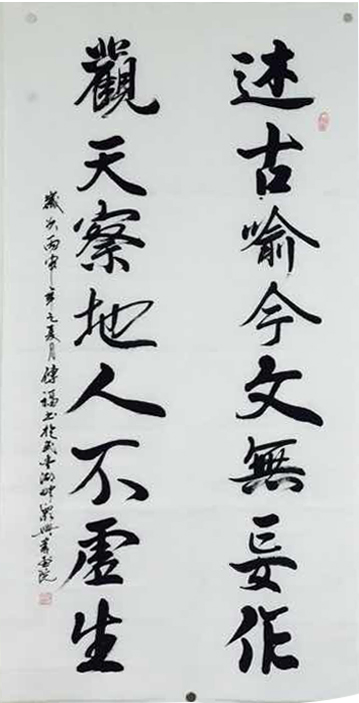 述古喻今文無妄作
觀天察地人不虛生
歲次丙申年之夏月